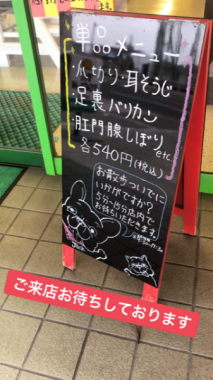 単品メニュー
・爪切り・耳そうじ
・足裏バリカン
・肛門腺しぼり
etc
各540円(税込)
お散歩ついでに
いかがですか?
5分~15分店内で
お待ちいただきます。
ご来店お待ちしております